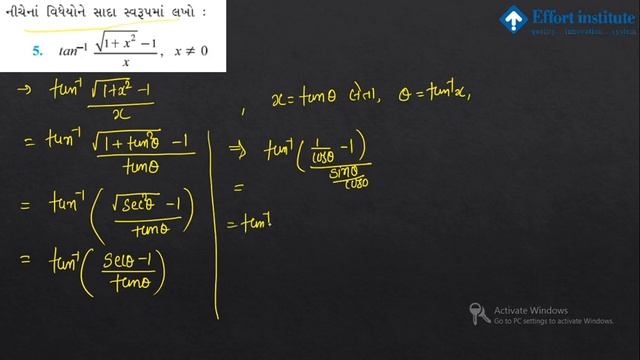 નીચેનાં વિધેયોને સાદા સ્વરૂપમાં લખો :
5. tan⁻¹ (√(1+x²) −1)/x, x ≠ 0
Effort institute
quality... innovation... system
→ tan⁻¹ (√(1+x²) −1)/x , x = tanθ લેતા, θ = tan⁻¹x,
= tan⁻¹ (√(1+tan²θ) −1)/tanθ
= tan⁻¹ ((√sec²θ −1)/tanθ)
= tan⁻¹ ((secθ −1)/tanθ)
⇒ tan⁻¹ ((1/cosθ −1)/(sinθ/cosθ))
=
= tan⁻¹
Activate Windows
Go to PC settings to activate Windows.